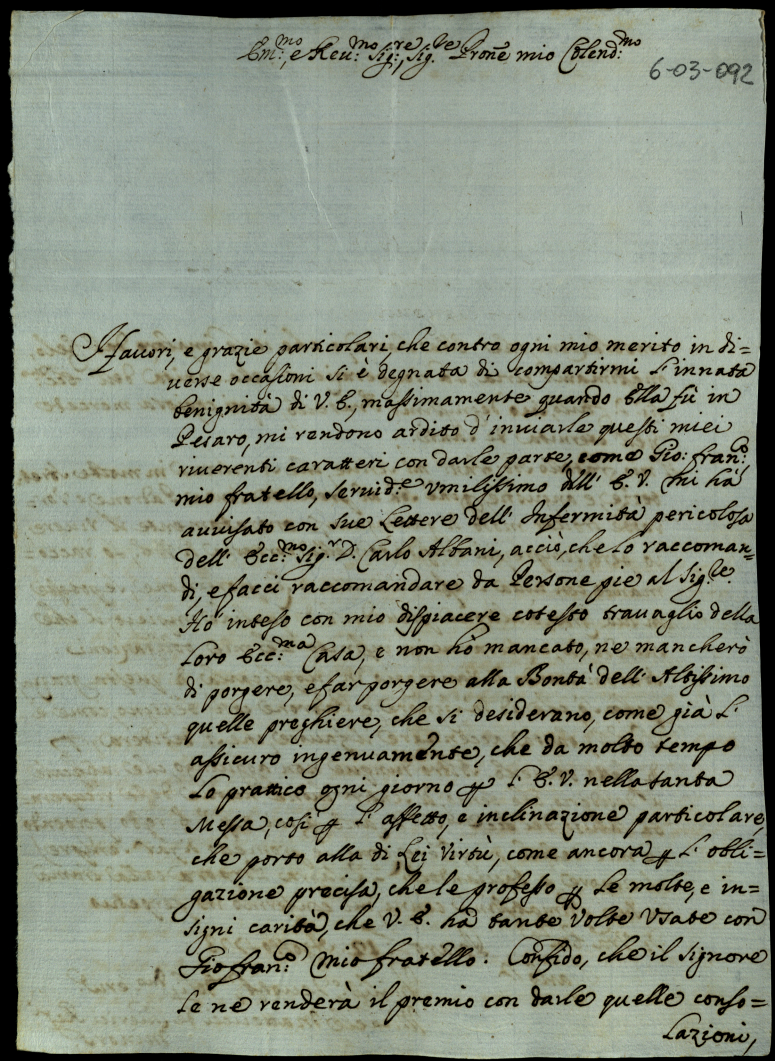 Em:mo, e Reu:mo Sig:re, Sig:re Prone mio Colend:mo
6-03-092
I fauori, e grazie particolàri, che contro ogni mio merito in di=
uerse occasioni si è degnata di compartirmi l'innata
benignità di V. E., massimamente quando Ella fù in
Pesaro, mi rendono ardito d'inuiarle questi miei
riuerenti caratteri con darle parte, come Gio: fran:co
mio fratello, seruid:re vmilissimo dell' E. V. mi hà
auuisato con sue Lettere dell' Infermità pericolosa
dell' Ecc:mo Sig:r D. Carlo Albani, acciò, che lo raccoman=
di, e facci raccomandare da Persone pie al Sig:re.
Hò inteso con mio dispiacere cotesto trauaglio della
Loro Ecc:ma Casa, e non hò mancato, ne mancherò
di porgere, e far porgere alla Bontà dell' Altissimo
quelle preghiere, che si desiderano, come già l'
assicuro ingenuamente, che da molto tempo
lo prattico ogni giorno p l' E. V. nella santa
Messa, così p l' affetto, e inclinazione particolare,
che porto alla di Lei Virtù, come ancora p l' obli=
gazione precisa, che le professo p le molte, e in=
signi carità, che V. E. hà tante volte vsate con
Giofran:co mio fratello. Confido, che il Signore
le ne renderà il premio con darle quelle conso=
lazioni,